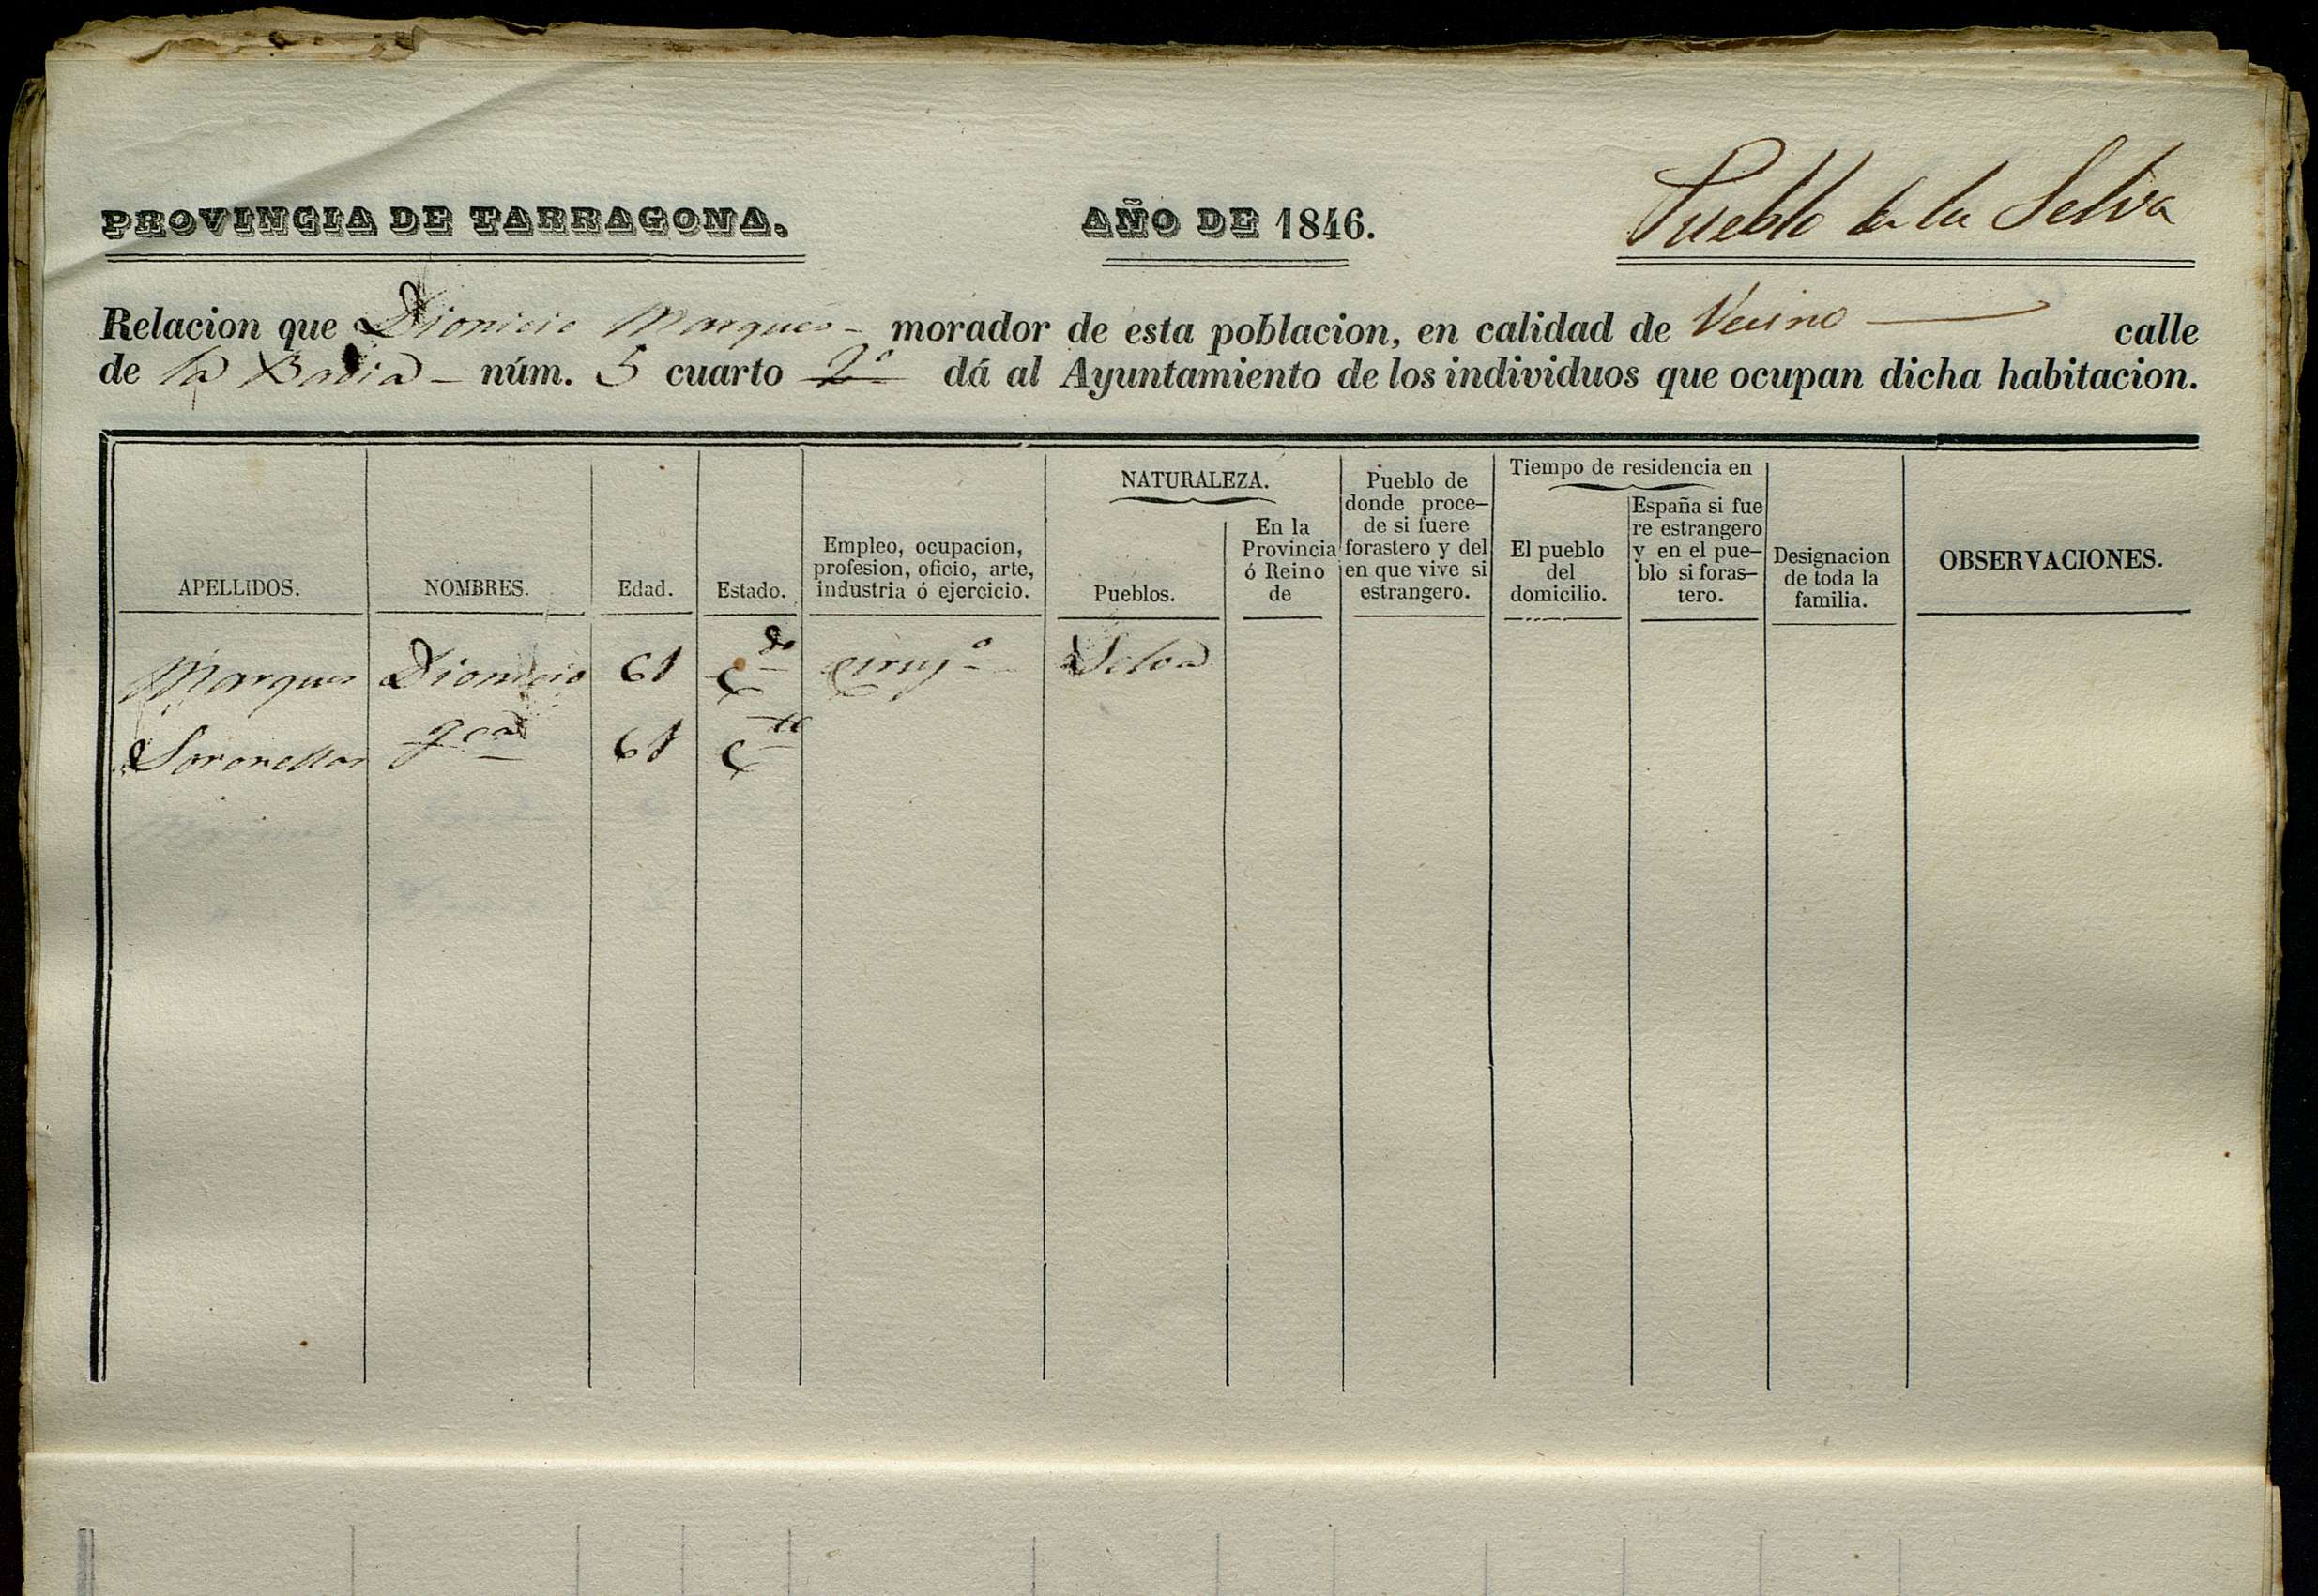 PROVINCIA DE TARRAGONA. AÑO DE 1846. Pueblo de la Selva
Relacion que Dionicio Marques - morador de esta poblacion, en calidad de Vecino — calle
de la Badia - núm. 5 cuarto 2º dá al Ayuntamiento de los individuos que ocupan dicha habitacion.
APELLIDOS.
NOMBRES.
Edad.
Estado.
Empleo, ocupacion,
profesion, oficio, arte,
industria ó ejercicio.
NATURALEZA.
Pueblos.
En la
Provincia
ó Reino
de
Pueblo de
donde proce-
de si fuere
forastero y del
en que vive si
estrangero.
Tiempo de residencia en
El pueblo
del
domicilio.
España si fue
re estrangero
y en el pue-
blo si foras-
tero.
Designacion
de toda la
familia.
OBSERVACIONES.
Marques Dionicio 61 Cdo Ciruj.º Selva
Soronellas 61 Cta